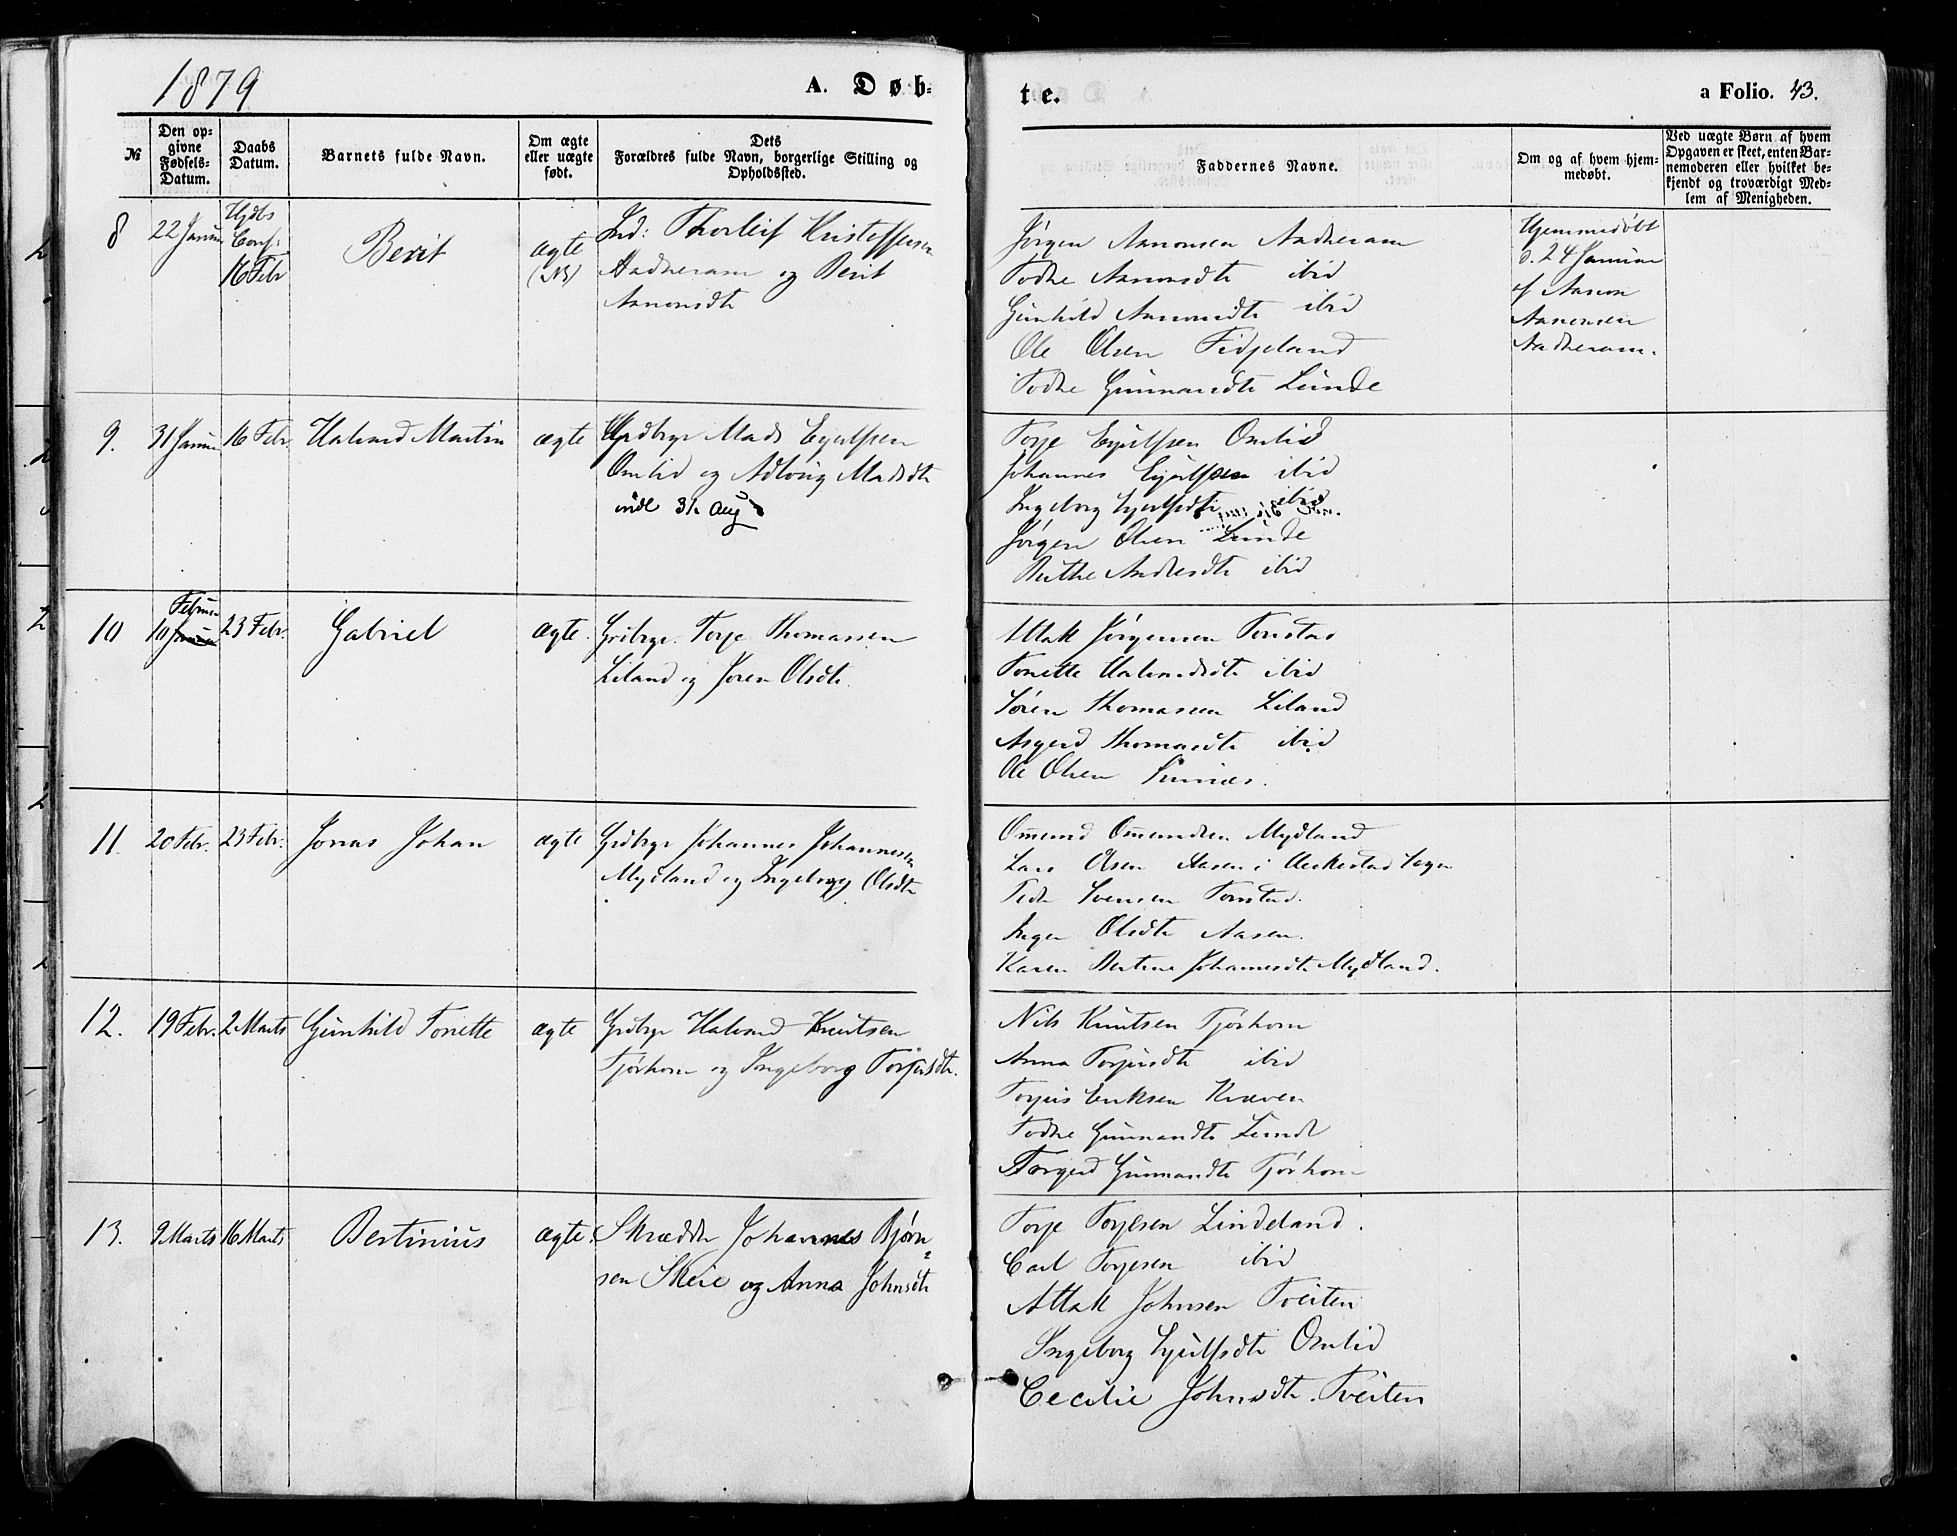 1879
A. Døb-
te.
a Folio. 43.
№
Den op-
givne
Fødsels-
Datum.
Daabs
Datum.
Barnets fulde Navn.
Om ægte
eller uægte
født.
Dets
Forældres fulde Navn, borgerlige Stilling og
Opholdssted.
Faddernes Navne.
Om og af hvem hjem-
medøbt.
Ved uægte Børn af hvem
Opgaven er skeet, enten Bar-
nemoderen eller hvilket be-
kjendt og troværdigt Med-
lem af Menigheden.
8
22 Januar
Hjdbs
Conf:
16 Febr
Berit
ægte
(NB)
Ind: Thorleif Kristoffersen
Aadneram og Berit
Aanonsdtr
Jørgen Aanonsen Aadneram
Todne Aanonsdtr ibid
Gunhild Aanonsdtr ibid
Ole Olsen Fidjeland
Todne Gunnarsdtr Lunde
Hjemmedøbt
d. 24 Januar
af Aanon
Aanonsen
Aadneram.
9.
31 Januar
16 Febr.
Halvard Martin
ægte
Grdbrgr Mads Ejulfsen
Omlid og Adlaug Madsdtr
indl 31 Aug
Torje Ejulfsen Omlid
Johannes Ejulfsen ibid
Ingeborg Ejulfsdtr ibid
Jørgen Olsen Lunde
Berthe Andersdtr ibid
10
Februar
10 Januar
23 Febr.
Gabriel
ægte.
Grdbrgr. Torje Thomassen
Liland og Joren Olsdtr.
Atlak Jørgensen Tonstad
Tonette Halvardsdtr ibid
Søren Thomassen Liland
Asgerd Thomasdtr ibid
Ole Olsen
11.
20 Febr.
23 Febr.
Jonas Johan
ægte
Grdbrgr Johannes Johannesen
Mydland og Ingeborg Olsdtr
Ommund Ommundsen Mydland
Lars Olsen Aasen i Heskestad Sogn
Peder Svensen Tonstad.
Inger Olsdtr Aasen.
Karen Bertine Johannesdtr Mydland.
12.
19 Febr.
2 Marts
Gunhild Tonette
ægte
Grdbrgr Halvard Knutsen
Tjørhom og Ingeborg Torjusdtr.
Nils Knutsen Tjørhom
Anna Torjusdtr ibid
Torjus Eriksen Kvæven
Todne Gunnarsdtr Lunde
Torgerd Gunnarsdtr Tjørhom
13.
9 Marts
16 Marts
Bertinius
ægte.
Skrædder Johannes Bjørn-
sen Skeie og Anna Johnsdtr
Torje Torjesen Lindeland.
Carl Torjesen ibid
Atlak Johnsen Tveiten
Ingeborg Ejulfsdtr Omlid
Cecilie Johnsdtr. Tveiten